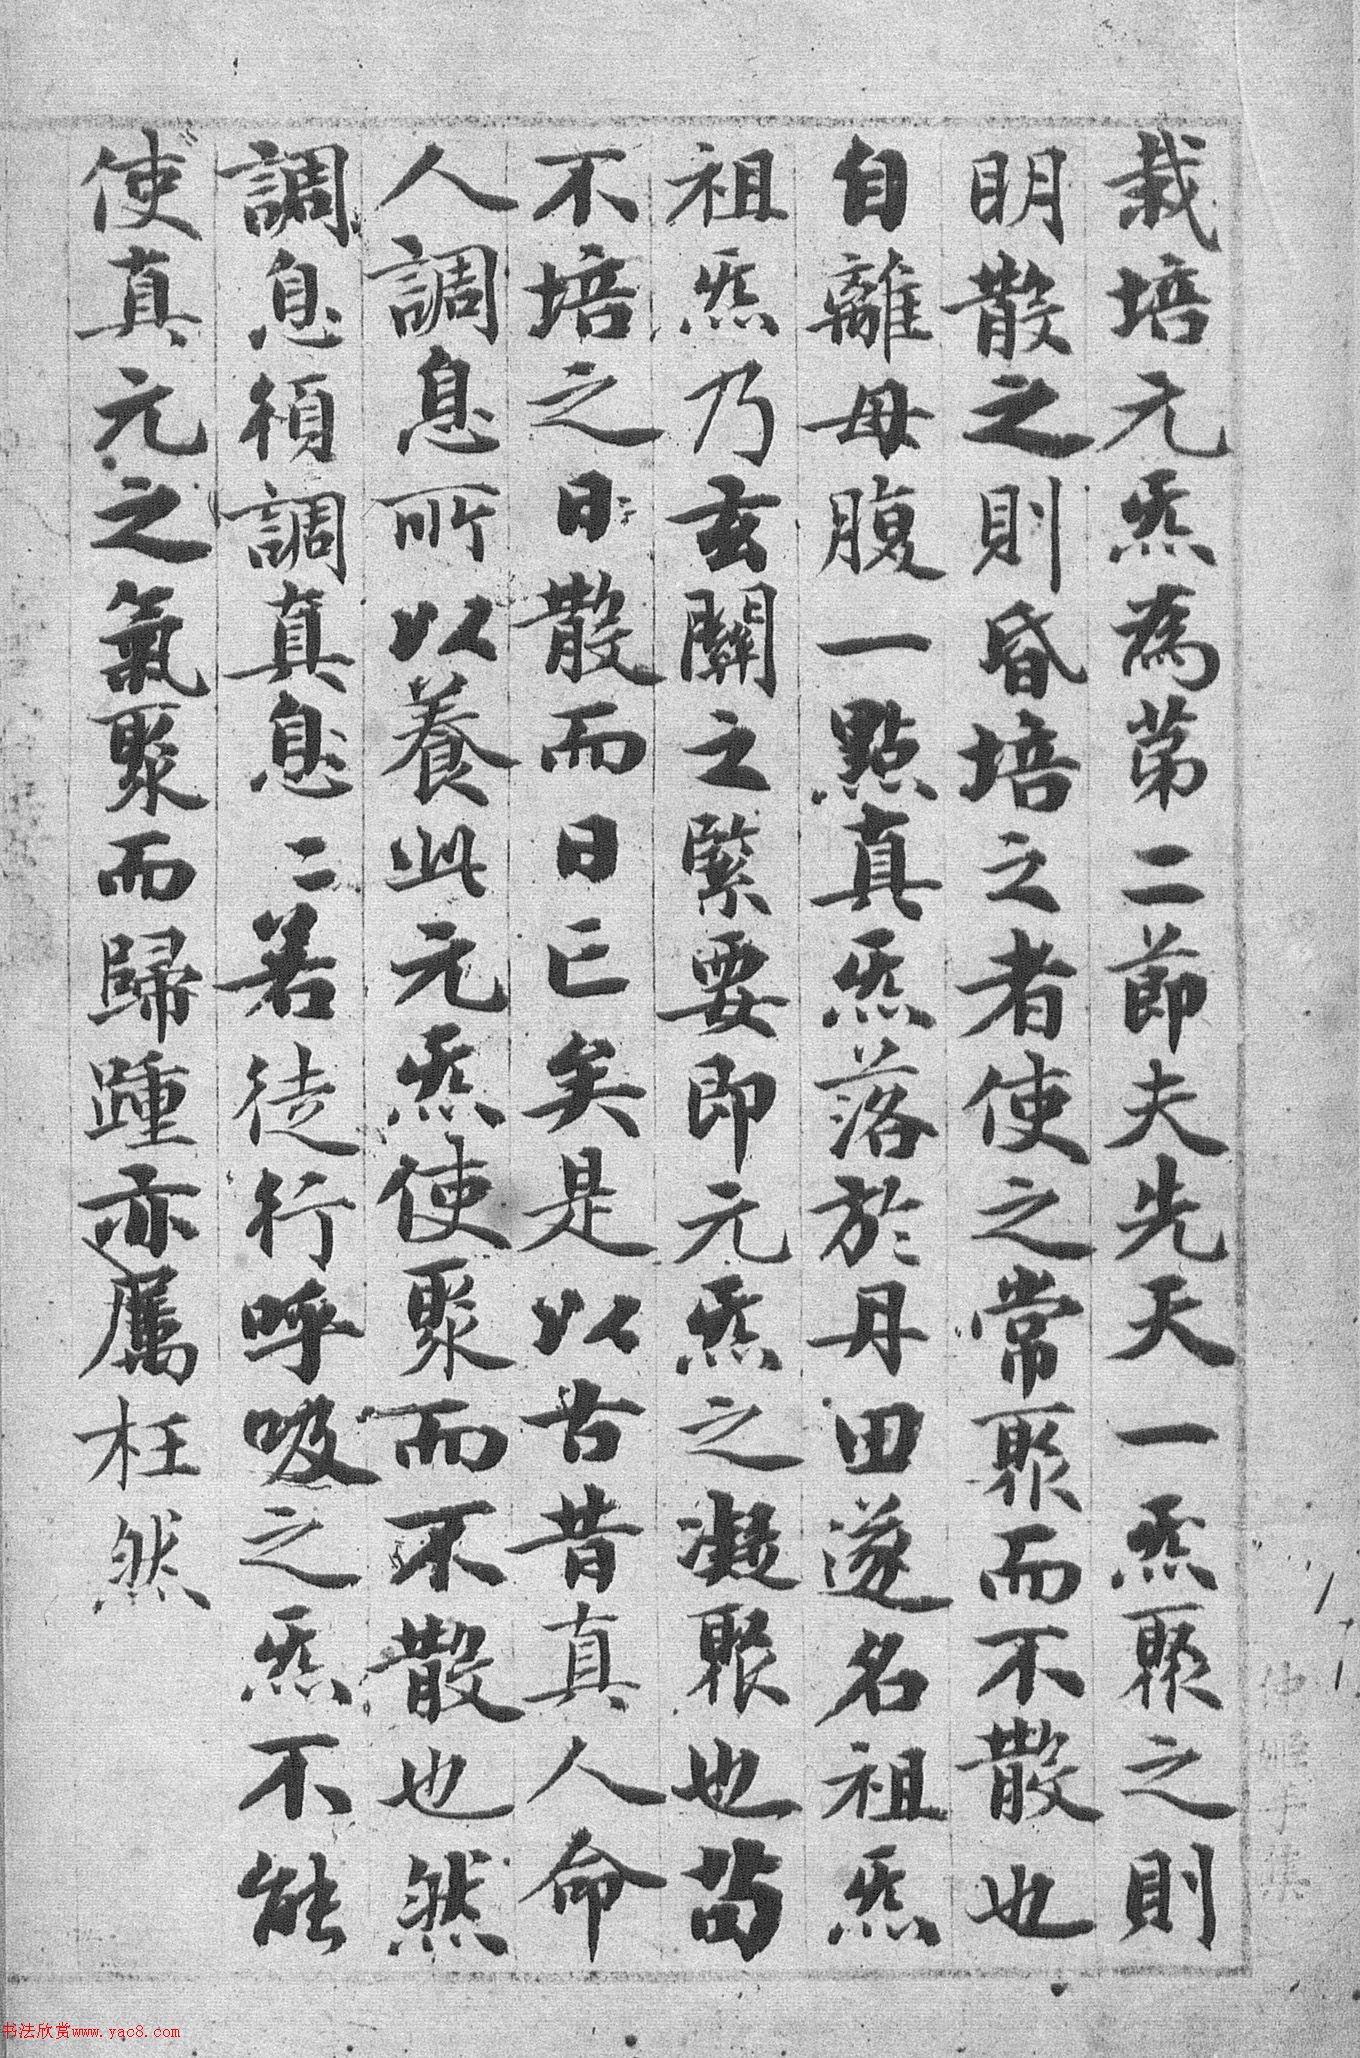 栽培元炁為第二節夫先天一炁聚之則
明散之則昏培之者使之常聚而不散也
自離母腹一點真炁落於丹田遂名祖炁
祖炁乃玄關之緊要即元炁之凝聚也苟
不培之日散而日亡矣是以古昔真人命
人調息所以養此元炁使聚而不散也然
調息須調真息二若徒行呼吸之炁不能
使真元之氣聚而歸踵亦属枉然
书法欣赏www.yac8.com